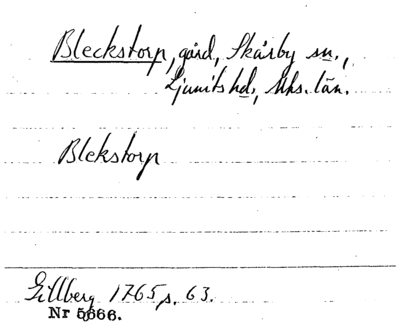 Bleckstorp, gård, Skårby sn.,
Ljunits hd., Mhs. län.
Blekstorp
Gillberg 1765 s. 63.
Nr 5666.